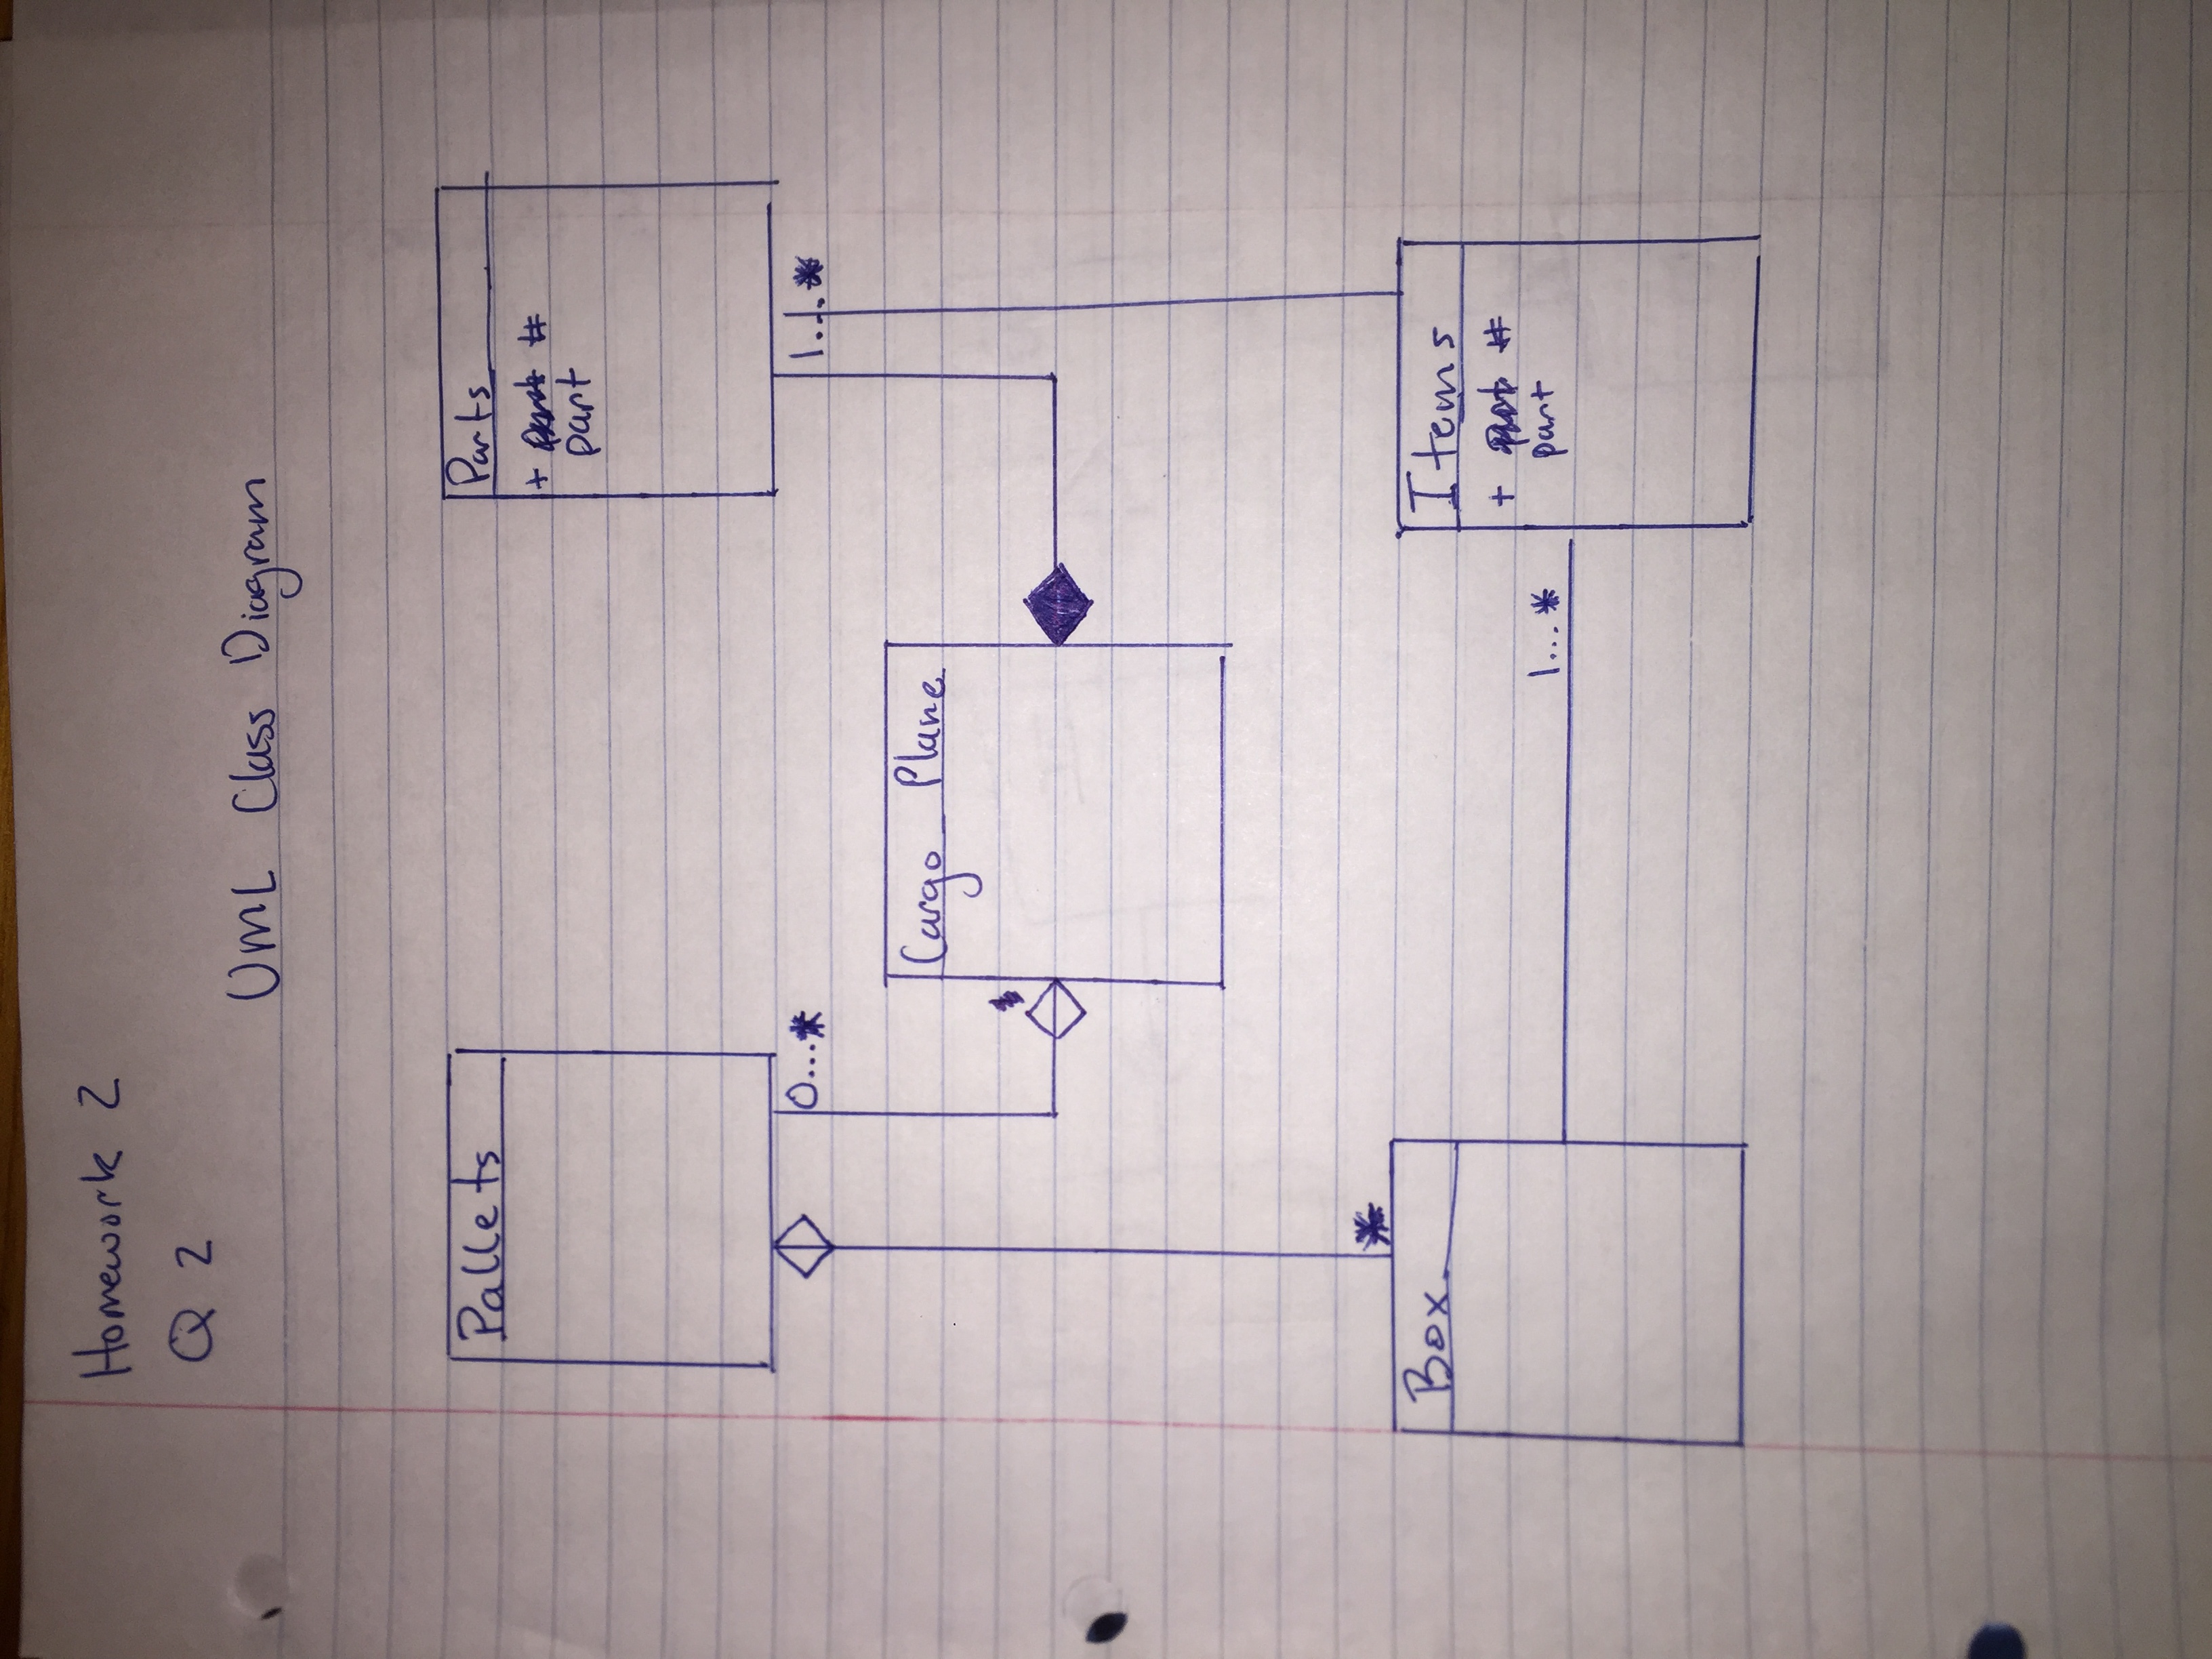 Homework 2
Q 2
UML Class Diagram
Pallets
Parts
+ #
part
0...*
1...*
Cargo Plane
*
Box
Items
+ #
part
1...*